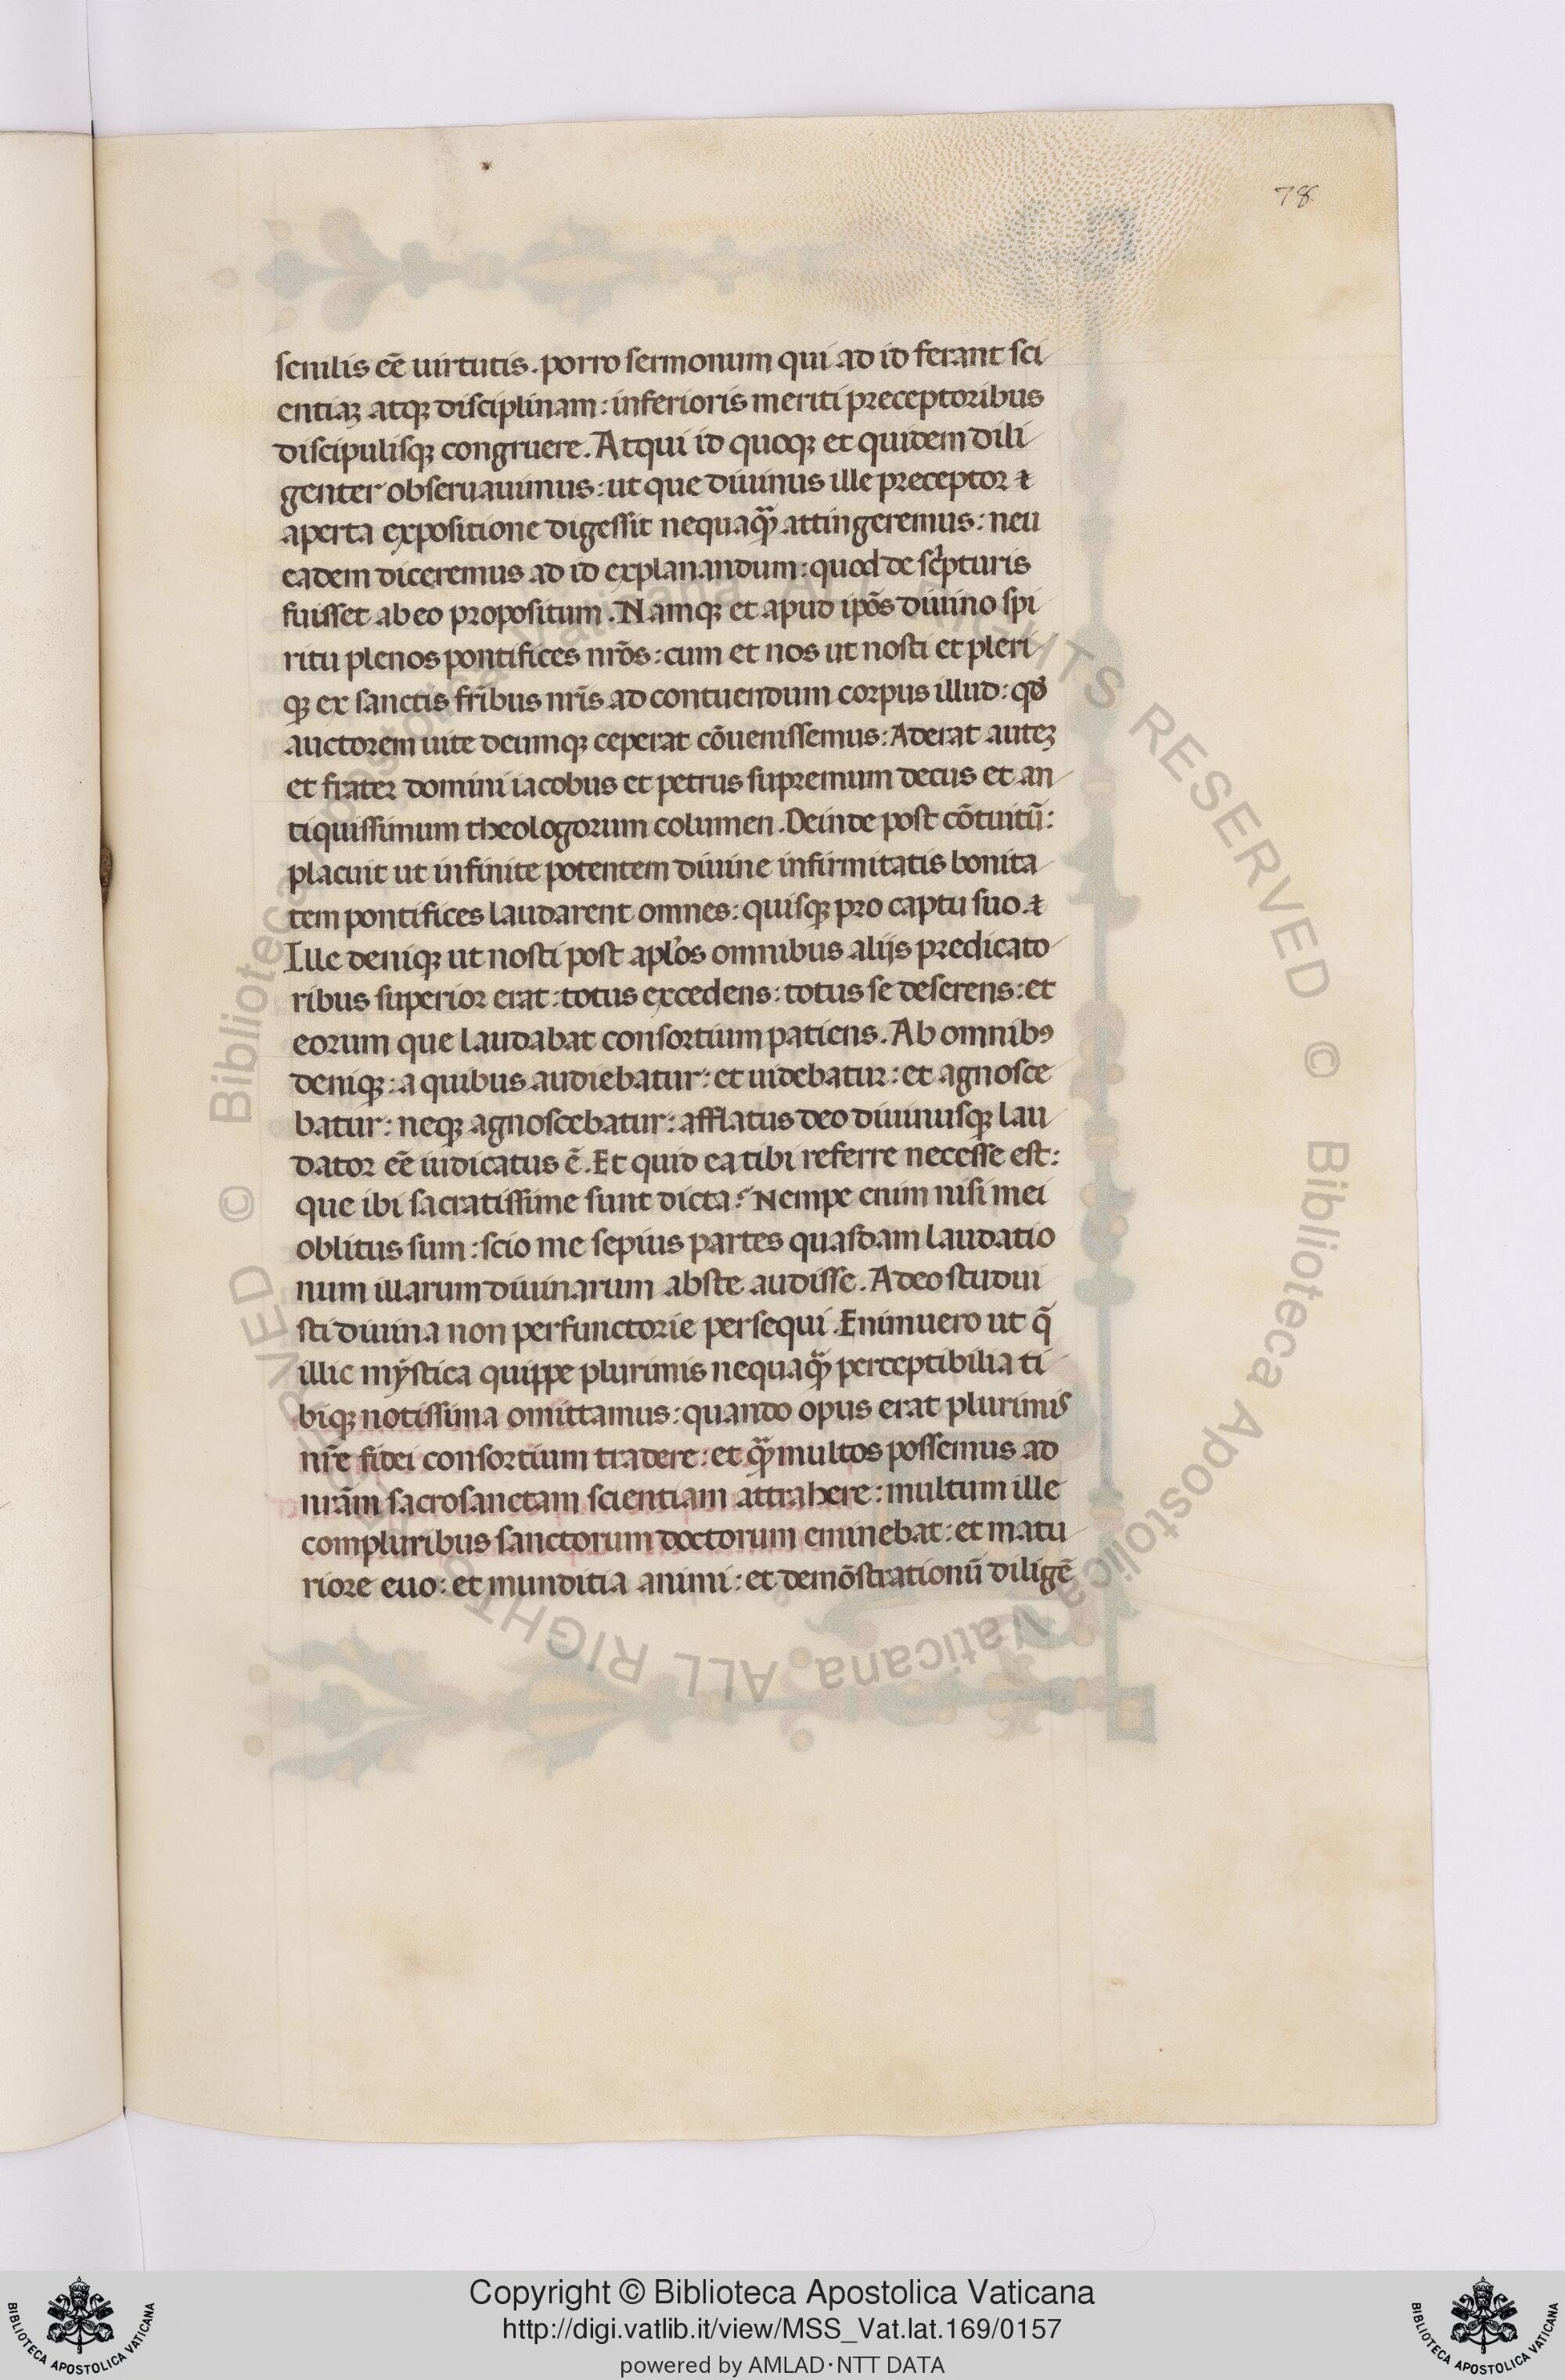 78
senilis eē uirtutis. porro sermonum qui ad id ferant sci
entiaꝫ atqꝫ disciplinam: inferioris meriti preceptoribus
discipulisqꝫ congruere. Atqui id quoqꝫ et quidem dili
genter obseruauimus: ut que diuinus ille preceptor ⁊
aperta expositione digessit nequaq̃ attingeremus: neu
eadem diceremus ad id explanandum: quod de sc̃pturis
fuisset ab eo propositum. Namqꝫ et apud ip̄os diuino spi
ritu plenos pontifices nr̄os: cum et nos ut nosti et pleri
qꝫ ex sanctis fr̄ibus nr̄is ad contuendum corpus illud: qd̓
auctorem uite deumqꝫ ceperat cōuenissemus: Aderat auteꝫ
et frater domini iacobus et petrus supremum decus et an
tiquissimum theologorum columen. Deinde post cōtuitū:
placuit ut infinite potentem diuine infirmitatis bonita
tem pontifices laudarent omnes: quisqꝫ pro captu suo. ⁊
Ille deniqꝫ ut nosti post apl̓os omnibus alijs predicato
ribus superior erat: totus excedens: totus se deserens: et
eorum que laudabat consortium patiens. Ab omnibꝯ
deniqꝫ: a quibus audiebatur: et uidebatur: et agnosce
batur: neqꝫ agnoscebatur: afflatus deo diuinusqꝫ lau
dator eē iudicatus ē. Et quid ea tibi referre necesse est:
que ibi sacratissime sunt dicta? Nempe enim nisi mei
oblitus sum: scio me sepius partes quasdam laudatio
num illarum diuinarum abste audisse. Adeo studui
sti diuina non perfunctorie persequi. Enimuero ut q̄
illic mẏstica quippe plurimis nequaq̃ perceptibilia ti
biqꝫ notissima omittamus: quando opus erat plurimis
nr̄e fidei consortium tradere: et q̃ multos possemus ad
nr̄am sacrosanctam scientiam attrahere: multum ille
compluribus sanctorum doctorum eminebat: et matu
riore euo: et munditia animi: et demōstrationū diligē
© Biblioteca Apostolica Vaticana ALL RIGHTS RESERVED © Biblioteca Apostolica Vaticana ALL RIGHTS RESERVED
Copyright © Biblioteca Apostolica Vaticana
http://digi.vatlib.it/view/MSS_Vat.lat.169/0157
powered by AMLAD·NTT DATA
BIBLIOTECA APOSTOLICA VATICANA
BIBLIOTECA APOSTOLICA VATICANA